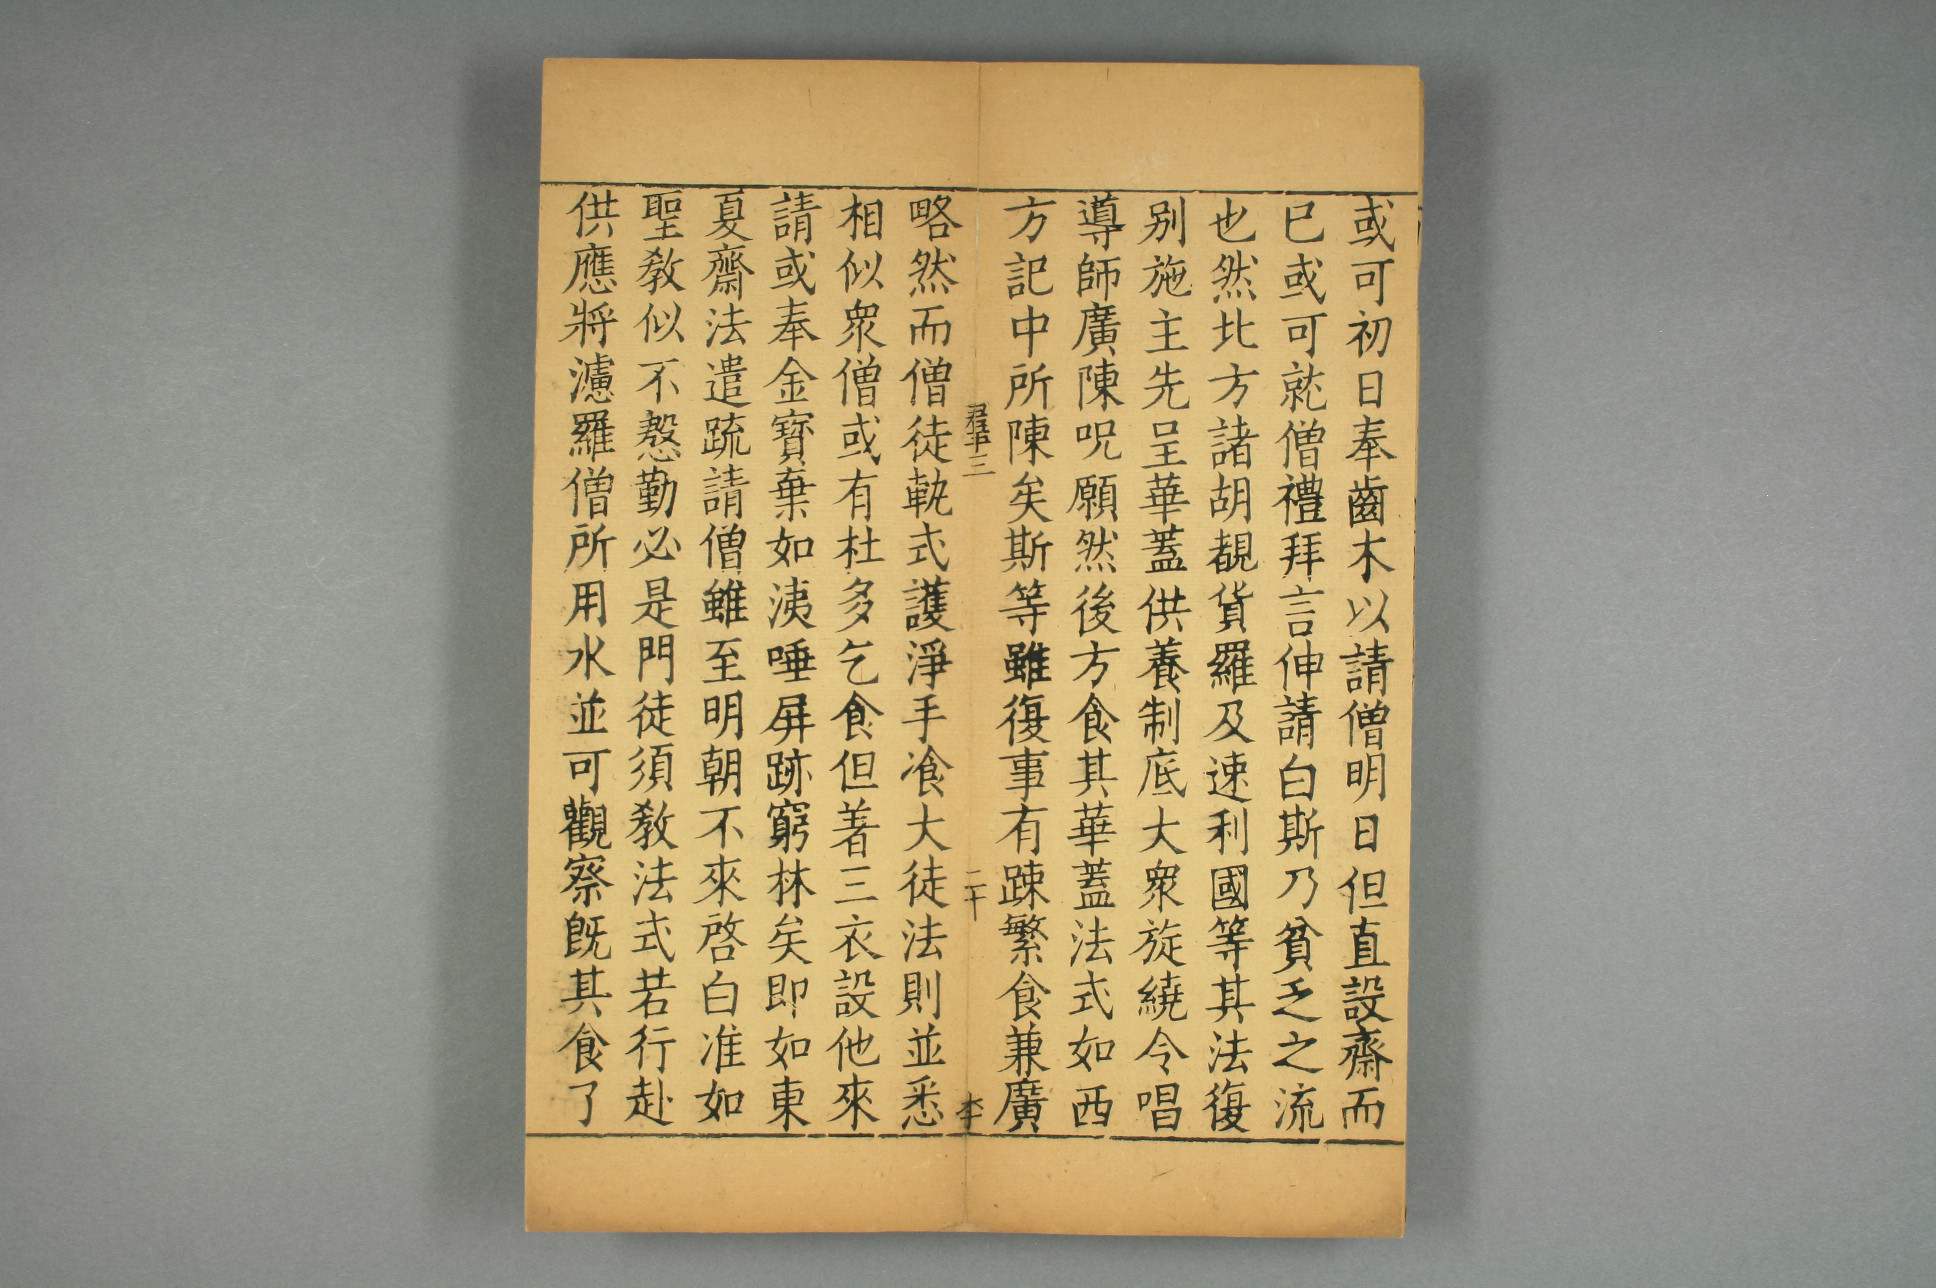 或可初日奉齒木以請僧明日但直設齋而
已或可就僧禮拜言伸請白斯乃貧乏之流
也然北方諸胡覩貨羅及速利國等其法復
别施主先呈華蓋供養制底大衆旋繞令唱
導師廣陳呪願然後方食其華蓋法式如西
方記中所陳矣斯等雖復事有踈繁食兼廣
羣三
二十
李
略然而僧徒軌式護淨手飡大徒法則並悉
相似衆僧或有杜多乞食但著三衣設他來
請或奉金寶棄如洟唾屏跡窮林矣即如東
夏齋法遣疏請僧雖至明朝不來啓白准如
聖教似不慇勤必是門徒須教法式若行赴
供應將濾羅僧所用水並可觀察既其食了